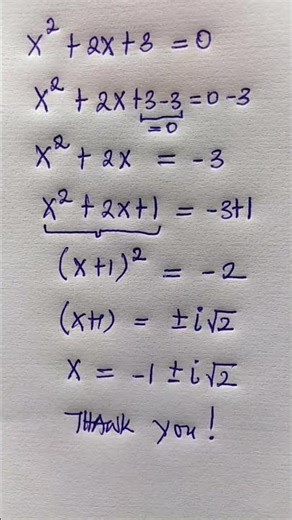 x² + 2x + 3 = 0
x² + 2x + 3 - 3 = 0 - 3
= 0
x² + 2x = -3
x² + 2x + 1 = -3+1
(x+1)² = -2
(x+1) = ±i√2
x = -1 ± i√2
THANK you!